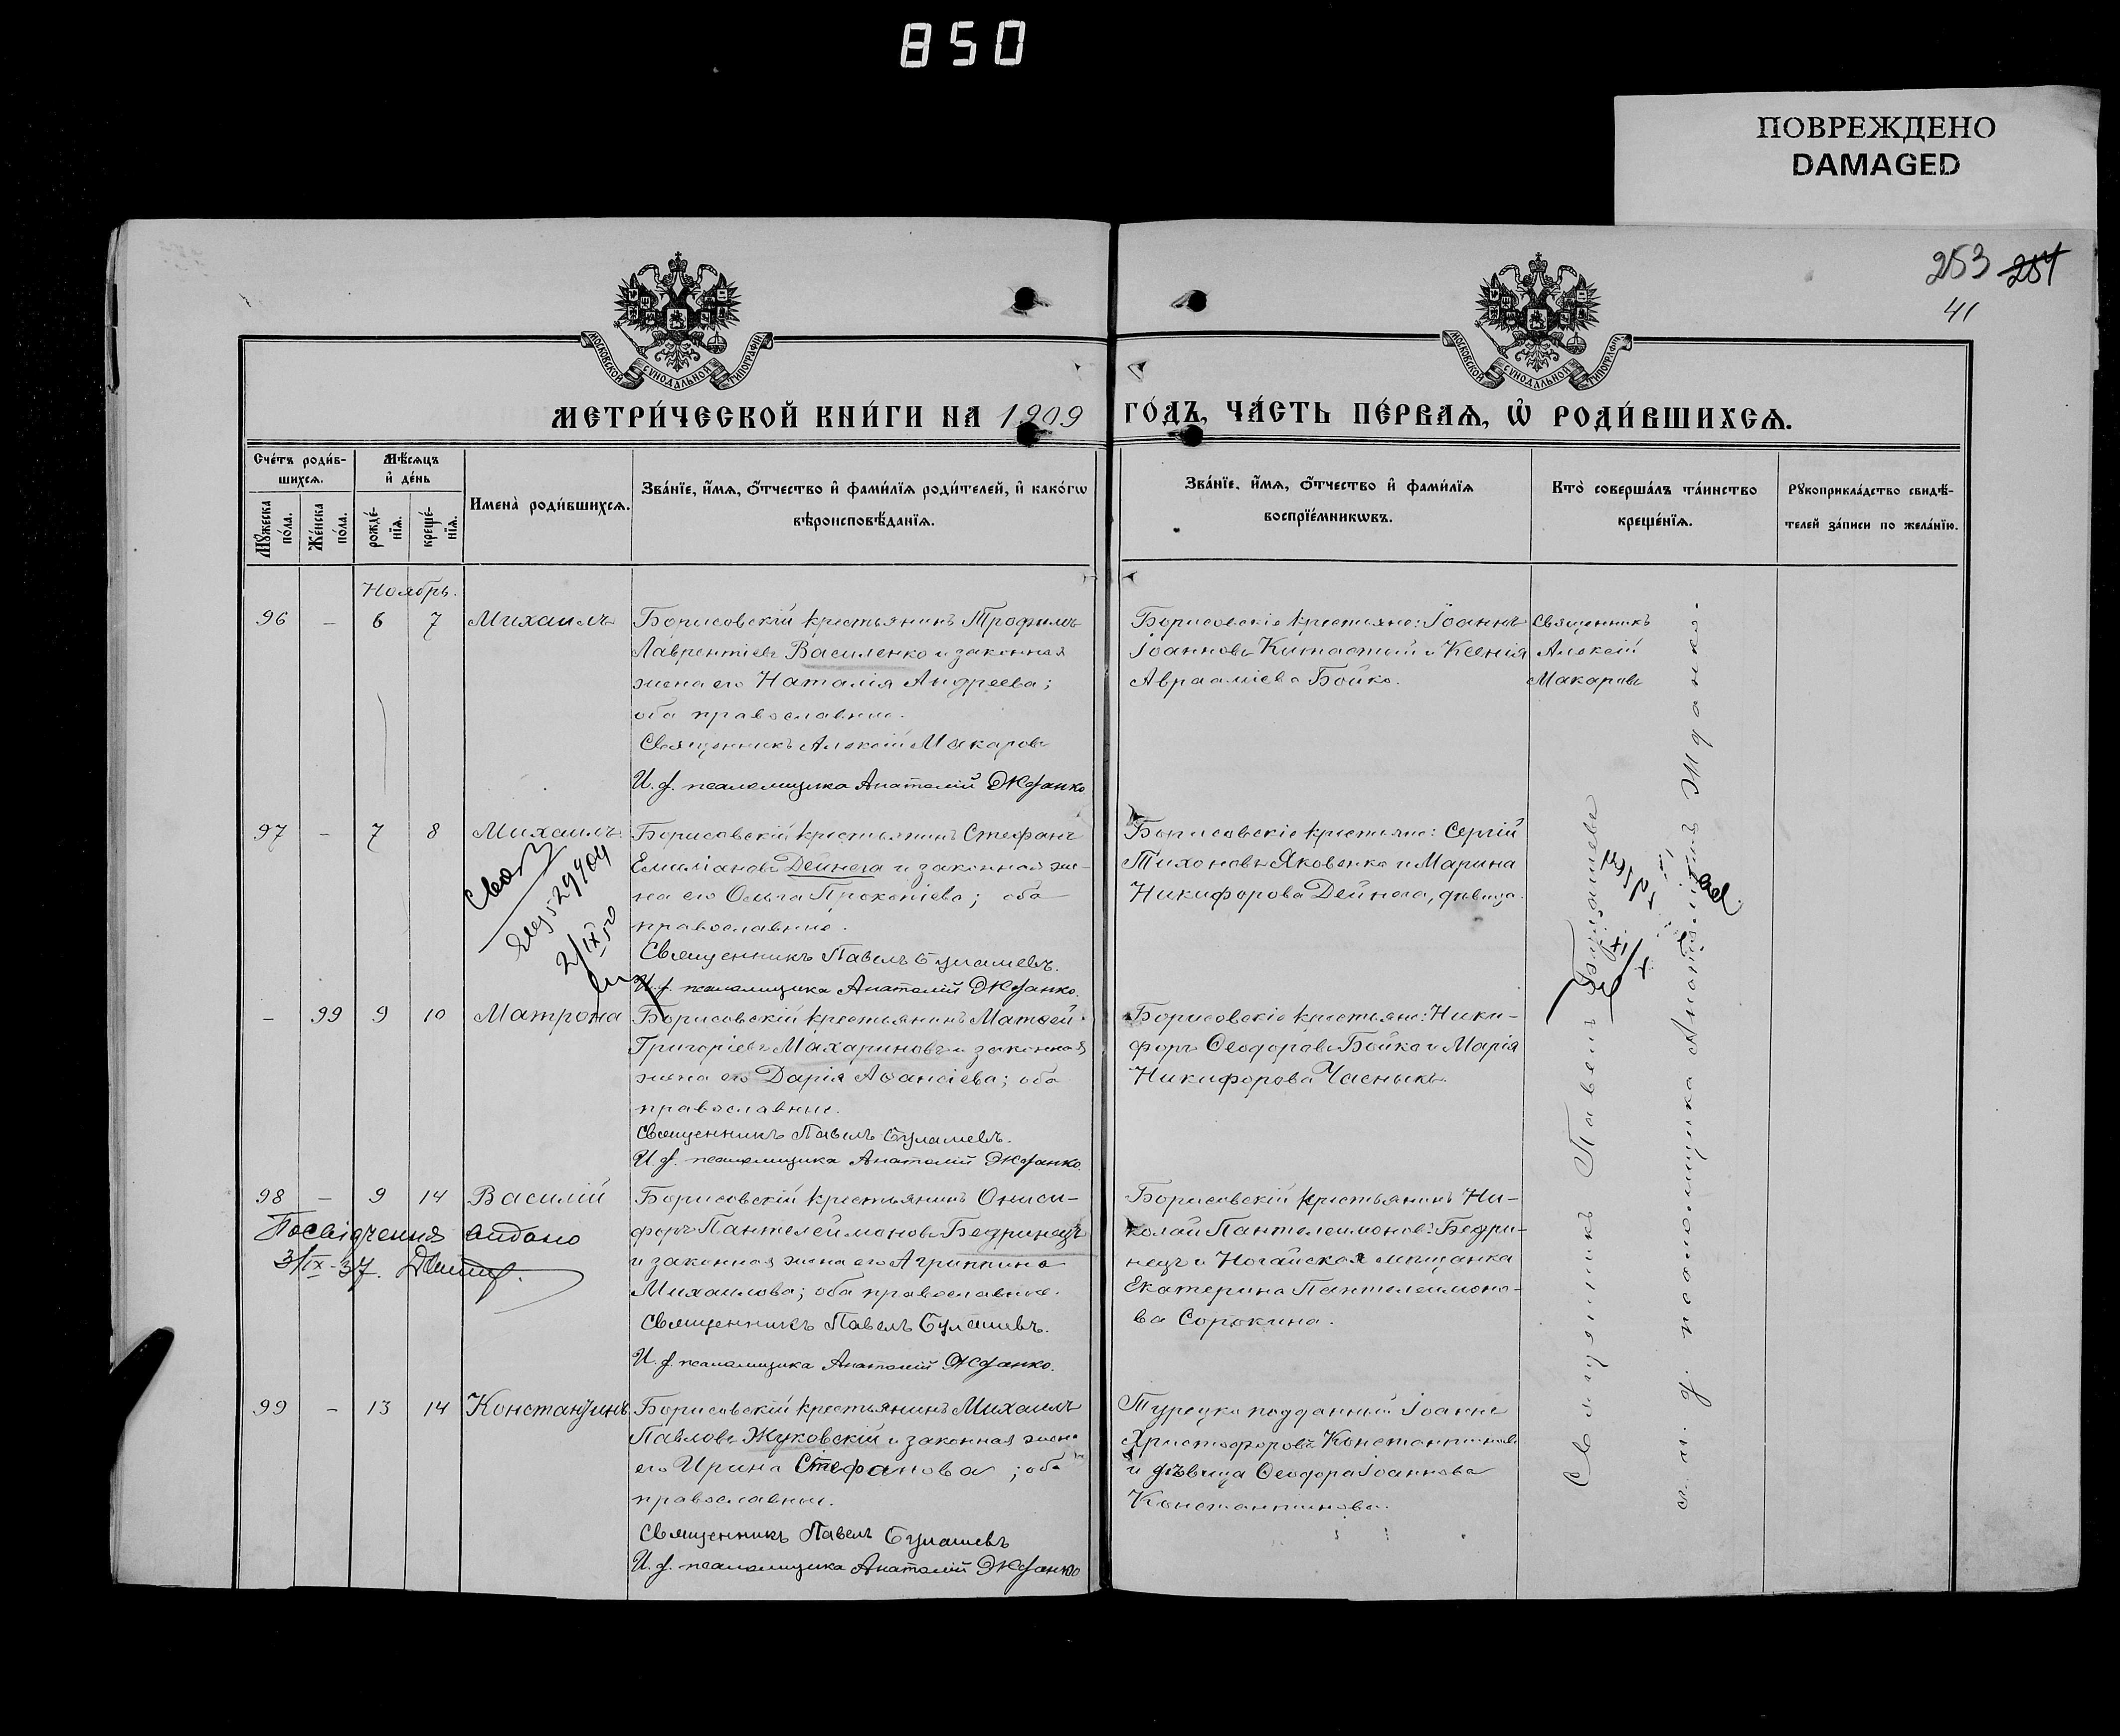 850
ПОВРЕЖДЕНО
DAMAGED
253 251
41
МОСКОВСКОЙ СУНОДАЛЬНОЙ ТИПОГРАФІИ
МОСКОВСКОЙ СУНОДАЛЬНОЙ ТИПОГРАФІИ
МЕТРИ́ЧЕСКОЙ КНИ́ГИ НА 1909 ГО́ДЪ, ЧА́СТЬ ПЕ́РВАѦ, Ѡ҆ РОДИ́ВШИХСѦ.
Сче́тъ роди́в-
шихсѧ.
Мѣ́сѧцъ
и҆ де́нь
Мꙋ́жеска
по́ла.
Же́нска
по́ла.
рожде́-
нїѧ.
креще́-
нїѧ.
Имена̀ роди́вшихсѧ.
Зва́нїе, и҆́мѧ, ѻ҆́тчество и҆ фами́лїѧ роди́телей, и҆ како́гѡ
вѣроисповѣ́данїѧ.
Зва́нїе, и҆́мѧ, ѻ҆́тчество и҆ фами́лїѧ
воспрїе́мникѡвъ.
Кто̀ соверша́лъ та́инство
креще́нїѧ.
Рꙋкоприкла́дство свидѣ́-
телей за́писи по жела́нїю.
Ноябрь.
96 – 6 7 Михаилъ
Борисовскій крестьянинъ Трофимъ
Лаврентіевъ Василенко и законная
жена его Наталія Андреева;
оба православные.
Священникъ Алексій Макаровъ
И. д. псаломщика Анатолій Жданко
Борисовскіе крестьяне: Іоаннъ
Іоанновъ Китастый и Ксенія
Авраамiева Бойко.
Священникъ
Алексій
Макаровъ
97 – 7 8 Михаилъ
Борисовскій крестьянинъ Стефанъ
Емиліановъ Дейнега и законная же-
на его Ольга Прокопіева; оба
православные.
Священникъ Павелъ Булашевъ.
И. д. псаломщика Анатолій Жданко.
29404
2/IX 50
Борисовскіе крестьяне: Сергій
Тихоновъ Яковенко и Марина
Никифорова Дейнега, дѣвица.
– 99 9 10 Матрона
Борисовскій крестьянинъ Матѳей
Григоріевъ Махариновъ и законная
жена его Дарія Аѳанасіева; оба
православные.
Священникъ Павелъ Булашевъ.
И. д. псаломщика Анатолій Жданко.
Борисовскіе крестьяне: Ники-
форъ Ѳеодоровъ Бойко и Марія
Никифорова Часныкъ.
98 – 9 14 Василій
Посвідчення видано
3/IX-37.
Борисовскій крестьянинъ Ониси-
форъ Пантелеймоновъ Бедринецъ
и законная жена его Агриппина
Михаилова; оба православные.
Священникъ Павелъ Булашевъ.
И. д. псаломщика Анатолій Жданко.
Борисовскій крестьянинъ Ни-
колай Пантелеимоновъ Бедри-
нецъ и Ногайская мѣщанка
Екатерина Пантелеимоно-
ва Сорокина.
99 – 13 14 Константинъ
Борисовскій крестьянинъ Михаилъ
Павловъ Жуковскій и законная жена
его Ирина Стефанова; оба
православные.
Священникъ Павелъ Булашевъ
И. д. псаломщика Анатолій Жданко
Турецко подданный Іоаннъ
Христофоровъ Константиновъ
и дѣвица Ѳеодора Іоаннова
Константинова.
Священникъ Павелъ Булашевъ
и. д. псаломщика Анатолій Жданко.